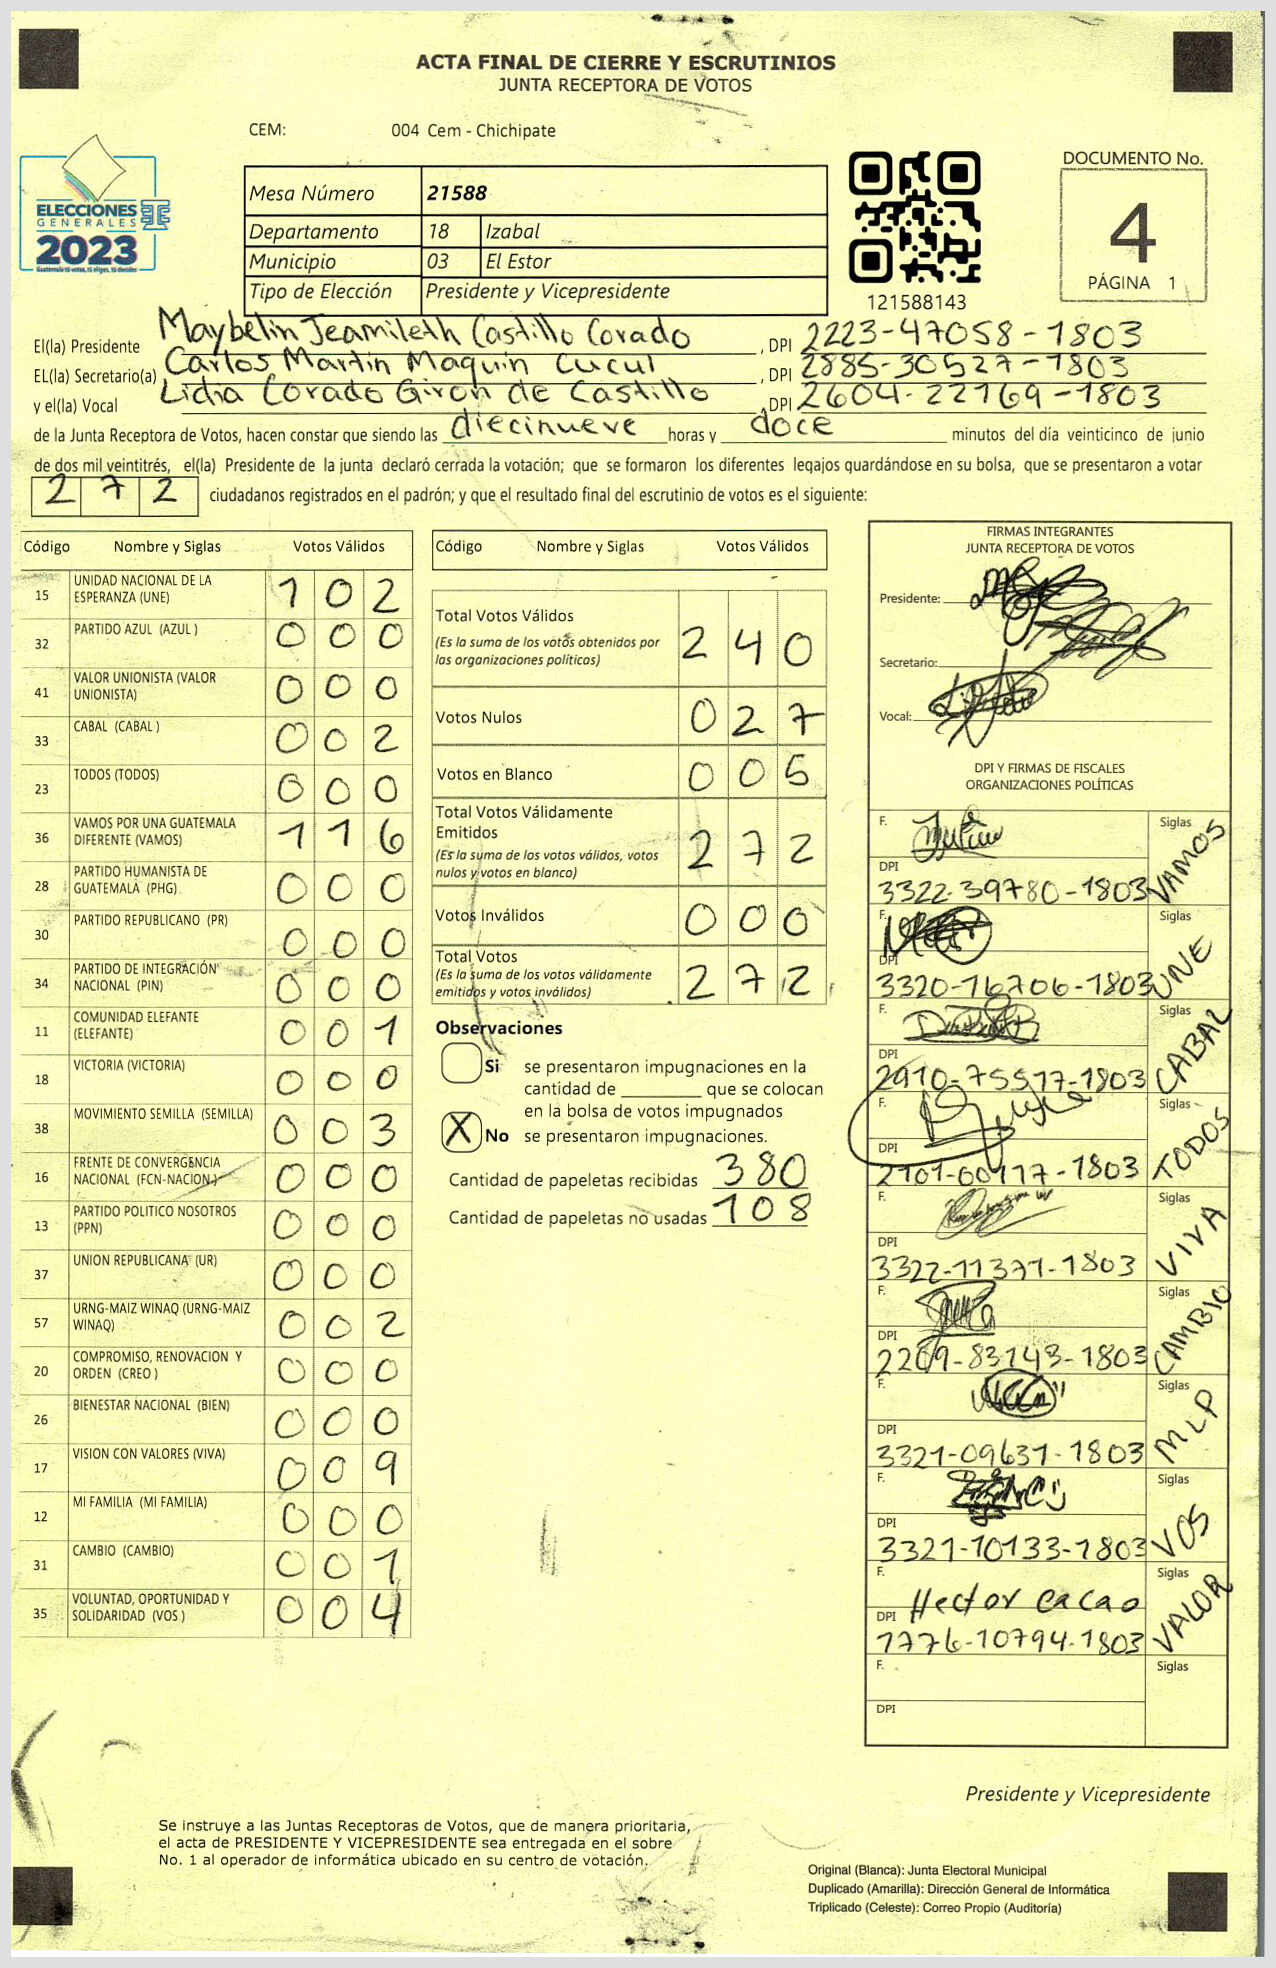 ACTA FINAL DE CIERRE Y ESCRUTINIOS
JUNTA RECEPTORA DE VOTOS
CEM: 004 Cem - Chichipate
ELECCIONES
GENERALES
2023
Mesa Número 21588
Departamento 18 Izabal
Municipio 03 El Estor
Tipo de Elección Presidente y Vicepresidente
121588143
DOCUMENTO No.
4
PÁGINA 1
El(la) Presidente Maybelin Jeamileth Castillo Corado, DPI 2223-47058-1803
EL(la) Secretario(a) Carlos Martin Maquin Cucul, DPI 2885-30527-1803
y el(la) Vocal Lidia Corado Giron de Castillo, DPI 2604-22169-1803
de la Junta Receptora de Votos, hacen constar que siendo las diecinueve horas y doce minutos del día veinticinco de junio
de dos mil veintitrés, el(la) Presidente de la junta declaró cerrada la votación; que se formaron los diferentes legajos guardándose en su bolsa, que se presentaron a votar
2 7 2 ciudadanos registrados en el padrón; y que el resultado final del escrutinio de votos es el siguiente:
Código Nombre y Siglas Votos Válidos
15 UNIDAD NACIONAL DE LA ESPERANZA (UNE) 1 0 2
32 PARTIDO AZUL (AZUL ) 0 0 0
41 VALOR UNIONISTA (VALOR UNIONISTA) 0 0 0
33 CABAL (CABAL ) 0 0 2
23 TODOS (TODOS) 0 0 0
36 VAMOS POR UNA GUATEMALA DIFERENTE (VAMOS) 1 1 6
28 PARTIDO HUMANISTA DE GUATEMALA (PHG) 0 0 0
30 PARTIDO REPUBLICANO (PR) 0 0 0
34 PARTIDO DE INTEGRACIÓN NACIONAL (PIN) 0 0 0
11 COMUNIDAD ELEFANTE (ELEFANTE) 0 0 1
18 VICTORIA (VICTORIA) 0 0 0
38 MOVIMIENTO SEMILLA (SEMILLA) 0 0 3
16 FRENTE DE CONVERGENCIA NACIONAL (FCN-NACION) 0 0 0
13 PARTIDO POLITICO NOSOTROS (PPN) 0 0 0
37 UNION REPUBLICANA (UR) 0 0 0
57 URNG-MAIZ WINAQ (URNG-MAIZ WINAQ) 0 0 2
20 COMPROMISO, RENOVACION Y ORDEN (CREO ) 0 0 0
26 BIENESTAR NACIONAL (BIEN) 0 0 0
17 VISION CON VALORES (VIVA) 0 0 9
12 MI FAMILIA (MI FAMILIA) 0 0 0
31 CAMBIO (CAMBIO) 0 0 1
35 VOLUNTAD, OPORTUNIDAD Y SOLIDARIDAD (VOS ) 0 0 4
Código Nombre y Siglas Votos Válidos
Total Votos Válidos 2 4 0
(Es la suma de los votos obtenidos por
las organizaciones políticas)
Votos Nulos 0 2 7
Votos en Blanco 0 0 5
Total Votos Válidamente
Emitidos 2 7 2
(Es la suma de los votos válidos, votos
nulos y votos en blanco)
Votos Inválidos 0 0 0
Total Votos 2 7 2
(Es la suma de los votos válidamente
emitidos y votos inválidos)
Observaciones
Si se presentaron impugnaciones en la
cantidad de ________ que se colocan
en la bolsa de votos impugnados
X No se presentaron impugnaciones.
Cantidad de papeletas recibidas 380
Cantidad de papeletas no usadas 108
FIRMAS INTEGRANTES
JUNTA RECEPTORA DE VOTOS
Presidente:
Secretario:
Vocal:
DPI Y FIRMAS DE FISCALES
ORGANIZACIONES POLÍTICAS
F. Siglas VAMOS
DPI
3322-39780-1803
F. Siglas UNE
DPI
3320-16706-1803
F. Siglas CABAL
DPI
2910-75577-1803
F. Siglas TODOS
DPI
2101-00117-1803
F. Siglas VIVA
DPI
3322-11371-1803
F. Siglas CAMBIO
DPI
2209-83143-1803
F. Siglas MLP
DPI
3321-09631-1803
F. Siglas VOS
DPI
3321-10133-1803
F. Hector cacao Siglas VALOR
DPI
1776-10794-1803
F. Siglas
DPI
Presidente y Vicepresidente
Se instruye a las Juntas Receptoras de Votos, que de manera prioritaria,
el acta de PRESIDENTE Y VICEPRESIDENTE sea entregada en el sobre
No. 1 al operador de informática ubicado en su centro de votación.
Original (Blanca): Junta Electoral Municipal
Duplicado (Amarilla): Dirección General de Informática
Triplicado (Celeste): Correo Propio (Auditoría)